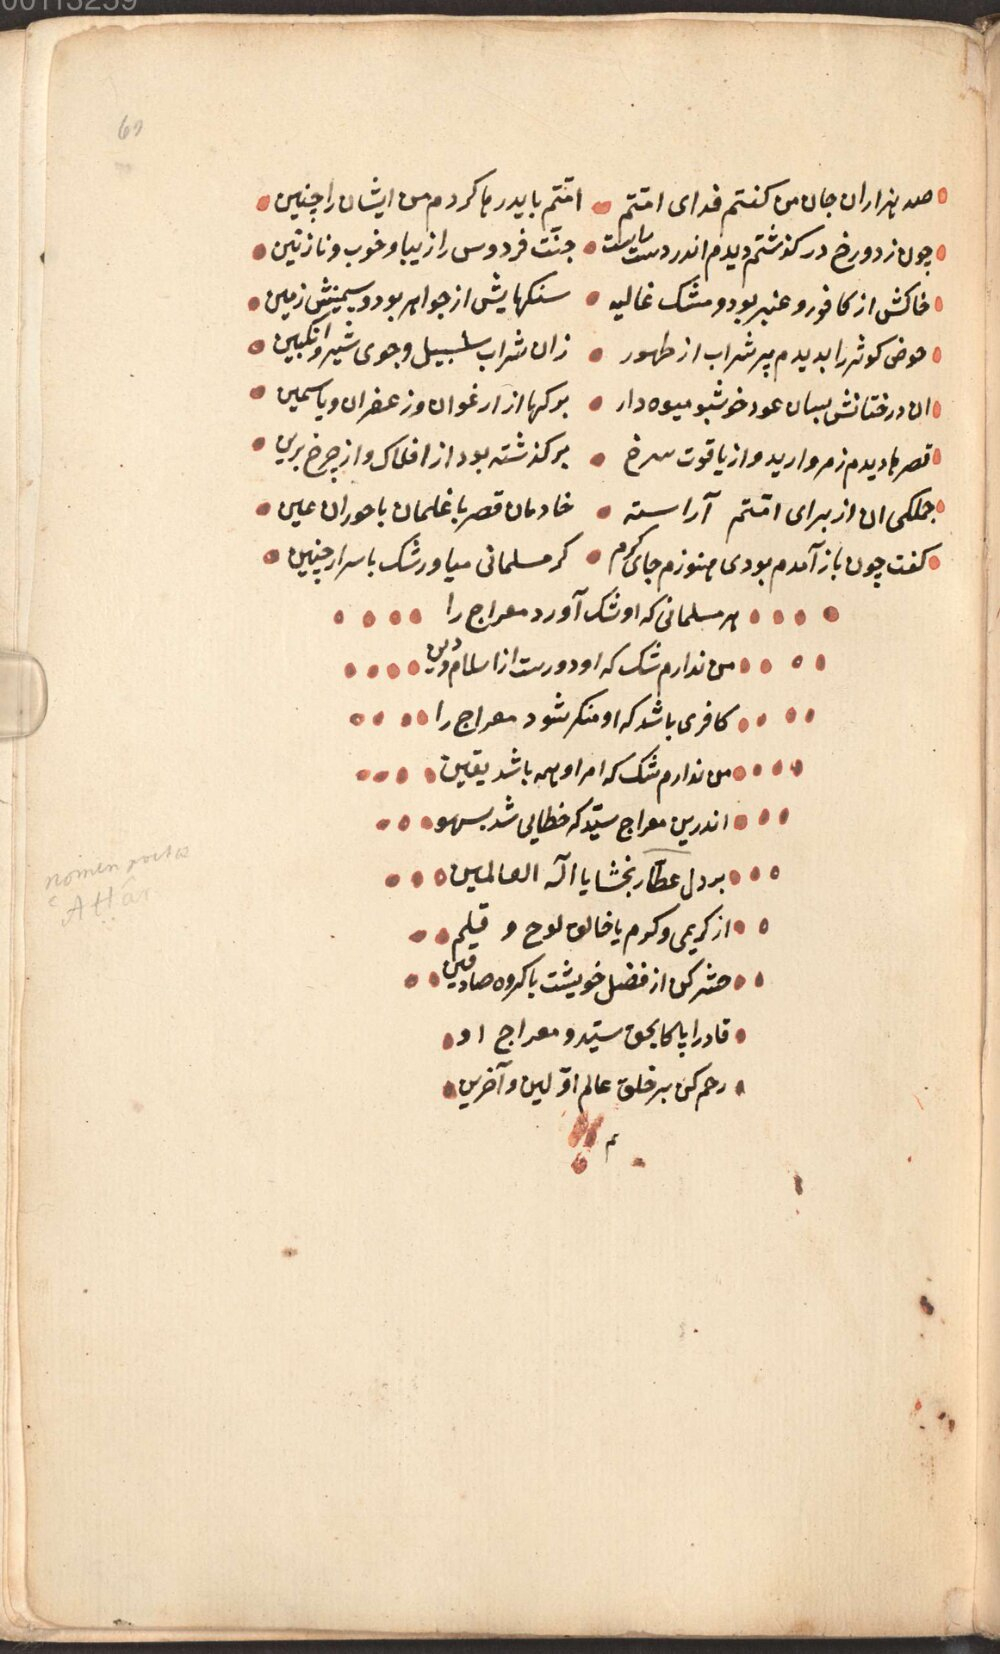 00113259
69
صد هزاران جان من کفتم فدای امّتم امّتم باید رها کردم من ایشان را چنین
چون ز دوزخ در کذشتم دیدم اندر دست راست جنّت فردوس را زیبا و خوب و نازنین
خاکش از کافور و عنبر بود و مشک غالیه سنکهایش از جواهر بود و سیمینش زمین
حوض کوثر را بدیدم پر شراب از طهور زان شراب سلسبیل و جوی شیر و انکبین
ان درختانش بسان عود خوشبو میوه دار برکها از ارغوان و زعفران و یاسمین
قصرها دیدم ز مروارید و از یاقوت سرخ برکذشته بود از افلاک و از چرخ برین
جملکی ان از برای امّتم آراسته خادمان قصر با غلمان با حوران عین
کفت چون باز آمدم بودی هنوزم جای کرم کر مسلمانی میاور شک باسرار چنین
هر مسلمانی که او شک آورد معراج را
من ندارم شک که او دورست از اسلام و دین
کافری باشد که او منکر شود معراج را
من ندارم شک که امر او همه باشد یقین
اندرین معراج سیّد که خطایی شد بسهو
بر دل عطّار بخشا یا اله العالمین
از کریمی و کرم یا خالق لوح و قلم
حشر کن از فضل خویشت با کروه صادقین
قادرا پاکا بحق سیّد و معراج او
رحم کن بر خلق عالم اوّلین و آخرین
م
nomen poetae
Attâr